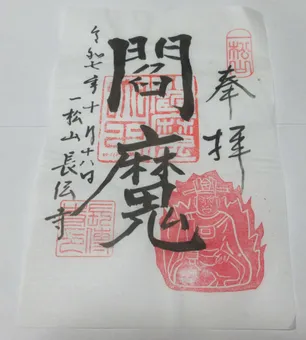 奉拝
閻魔
令和七年十月十八日
一松山長伝寺